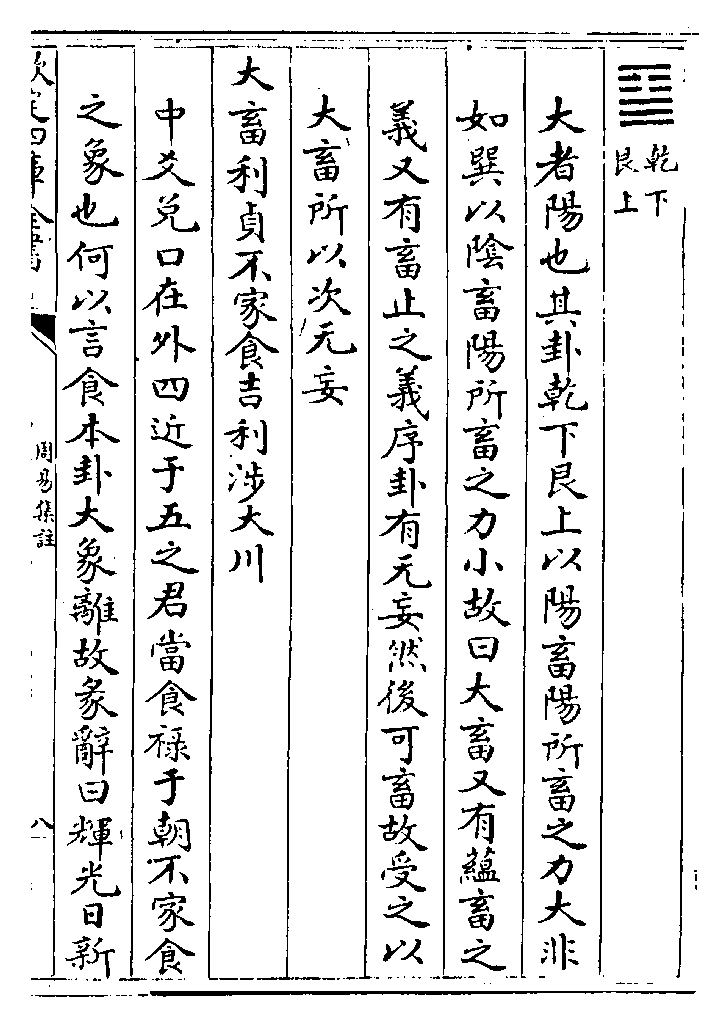 ䷙乾下
艮上
大者陽也其卦乾下艮上以陽畜陽所畜之力大非
如巽以陰畜陽所畜之力小故曰大畜又有蘊畜之
義又有畜止之義序卦有无妄然後可畜故受之以
大畜所以次无妄
大畜利貞不家食吉利涉大川
中爻兌口在外四近于五之君當食祿于朝不家食
之象也何以言食本卦大象離故彖辭曰輝光日新
欽定四庫全書
周易集註
八